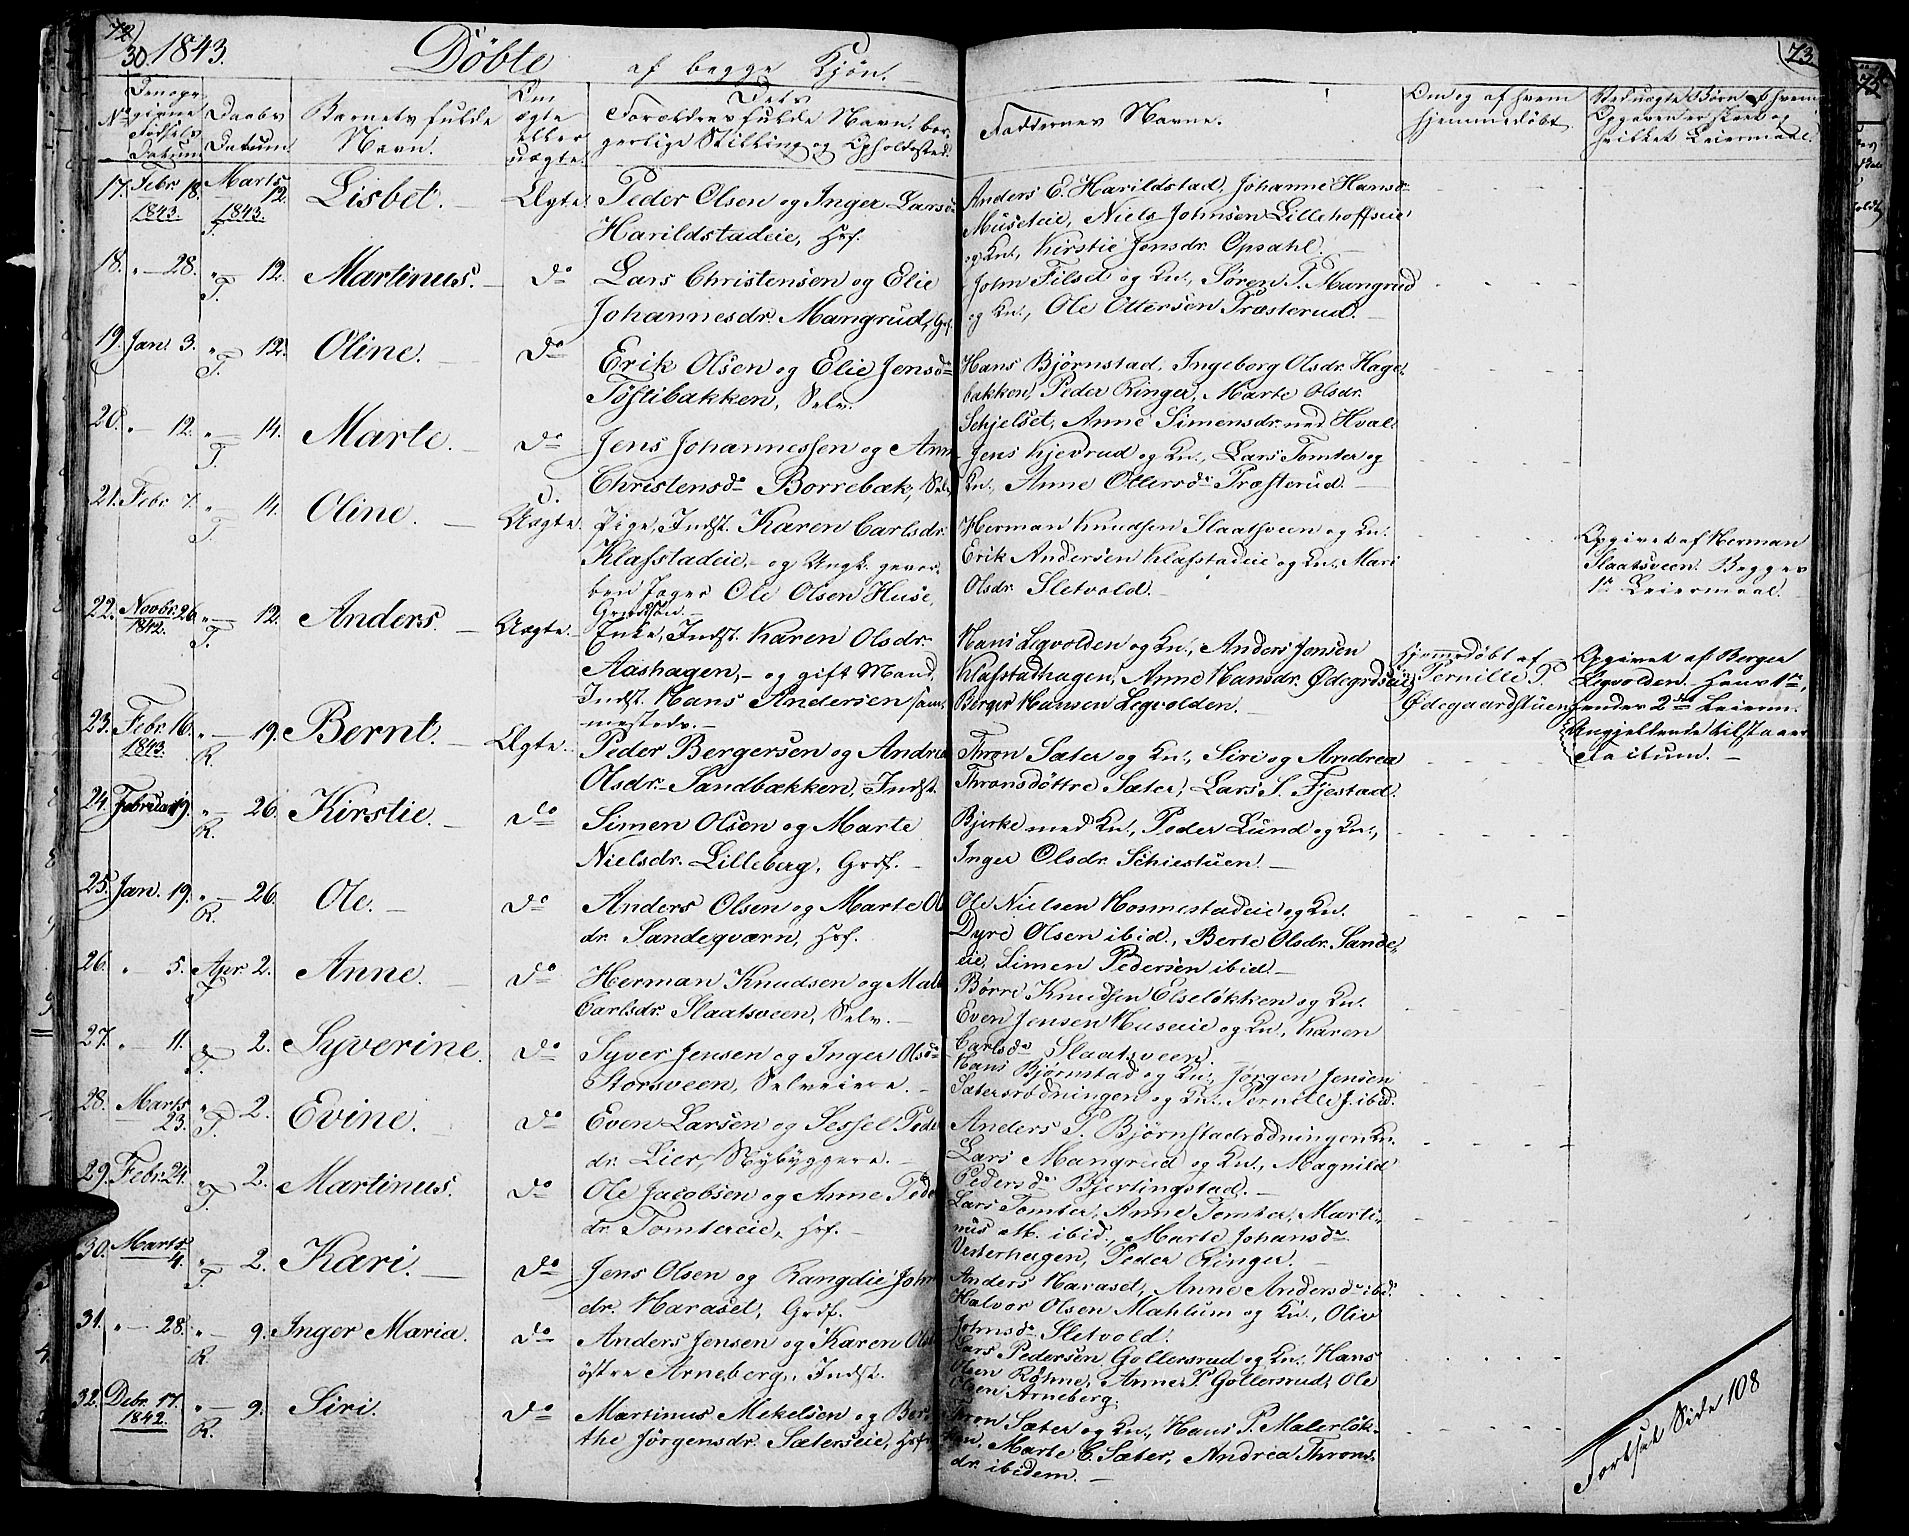 72)
30. 1843. Döbte af begge Kjön.
(73
No
Den og
givne
Fødsels
Datum
Daabs
Datum.
Barnets fulde
Navn.
Om
ægte
eller
uægte.
Dets
Forældres fulde Navn, bor-
gerlige Stilling og Opholdssted.
Faddernes Navne.
Om og af hvem
hjemmedøbt.
Ved uægte Børn af hvem
Opgaven er skeet og
hvilket Leiermaal.
17. Febr. 18. 1843. Marts 12. 1843. T. Lisbet. Ægte. Peder Olsen og Inger Larsd.
Harildstadeie, Hsf.
Anders E. Harildstad, Johanne Hansd.
Museteie, Niels Johnsen Lillehoffseie
og Kn., Kirstie Jensdr. Opsahl.
18. " 28. " 12. T. Martinus. do Lars Christensen og Elie
Johannesdr. Mangrud, Gf.
John Filset og Kn., Søren P. Mangrud
og Kn., Ole Ottersen Træsterud.
19. Jan. 3. " 12. T. Oline. do Erik Olsen og Elie Jensd.
Töftibakken, Selv.
Hans Bjørnstad, Ingeborg Olsdr. Hage-
bakken, Peder Ringer, Marte Olsdr.
Schjelset, Anne Simensdr. ned Hval.
20. " 12. " 14. T. Marte. do Jens Johannessen og Ann
Christensdr Borrebæk, Selv
Jens Kjevrud og Kn., Lars Tomter og
Kn., Anne Ottersdr Træsterud.
21. Febr 7. " 14. T. Oline. U. Uægte. Pige, Indst. Karen Carlsdr.
Klafstadeie, og Ungk. gevor-
ben Jæger Ole Olsen Huse,
Grndstn.
Herman Knudsen Slaatsveen og Kn.
Erik Andersen Klafstadeie og Kn. Mari
Olsdr. Sletvold.
Opgivet af Herman
Slaatsveen. Begges
1ste Leiermaal.
22. Novbr. 26. 1842. " 12. T. Anders. Uægte. Enke, Indst. Karen Olsdr.
Aashagen, og gift Mand,
Indst. Hans Andersen sam-
mesteds.
Hans Legvolden og Kn., Anders Jensen
Klafstadhagen, Anne Hansdr. Ødegrdseie,
Berger Hansen Legvolden.
Hjemmedøbt af
Pernille P.
Ødegaardstuen
Opgivet af Berger
Legvolden. Hans 1ste,
hendes 2det Leierm.
Angjeldende tilstaaer
Factum.
23. Febr. 16. 1843. " 19. R. Bernt. Ægte. Peder Bergersen og Andrea
Olsdr. Sandbækken, Indst.
Thron Sæter og Kn., Siri og Andrea
Thronsdøttre Sæter, Lars S. Fjestad.
24. Februar 19. " 26. R. Kirstie. do Simen Olsen og Marte
Nielsdr. Lilleberg, Grdf.
Bjerke med Kn., Peder Lund og Kn.,
Inger Olsdr. Schiestuen.
25. Jan. 19. " 26. R. Ole. do Anders Olsen og Marte Ol
dr. Sandeqværn, Hsf.
Ole Nielsen Honnestadeie og Kn.
Dyre Olsen ibid., Berte Olsdr. Sande-
eie, Simen Pedersen ibid.
26. " 5. Apr. 2. T. Anne. do Herman Knudsen og Mal
Carlsdr. Slaatsveen, Selv.
Børre Knudsen Elseløkken og Kn.
Even Jensen Huseeie og Kn., Karen
Carlsdr Slaatsveen.
27. " 11. " 2. T. Syverine. do Syver Jensen og Inger Olsd
Storsveen, Selveiere.
Hans Bjørnstad og Kn., Jørgen Jensen
Sætersrødningen og Kn., Pernille J. ibid.
28. Marts 23. " 2. T. Evine. do Even Larsen og Sessel Peder
dr. Lier, Nybyggere.
Anders P. Bjørnstadrødningen Kn.
Lars Mangrud og Kn., Magnild
Pedersdr Bjertingstad.
29. Febr. 24. " 2. T. Martinus. do Ole Jacobsen og Anne Peder
dr. Tomtereie, Hsf.
Lars Tomter, Anne Tomter, Marti-
nus M. ibid., Marte Johansdr
Vesterhagen, Peder Ringer.
30. Marts 4. " 2. T. Kari. do Jens Olsen og Rangdie John
dr. Haraset, Grdf.
Anders Haraset, Anne Andersdr ibid.
Halvor Olsen Mahlum og Kn., Oliv
Johnsdr Sletvold.
31. " 28. " 9. R. Inger Maria. do Anders Jensen og Karen Ols
østre Arneberg, Indst.
Lars Pedersen Gollersrud og Kn. Hans
Olsen Röhne, Anne P. Gollersrud, Ole
Olsen Arneberg.
32. Debr. 17. 1842. " 9. R. Siri. do Martinus Mekelsen og Ber
the Jørgensdr. Sæterseie, Hsf.
Thron Sæter og Kn., Hans P. Malerløk-
ken, Marte C. Sæter, Andrea Throns-
dr. ibidem.
Fortsat Side 108